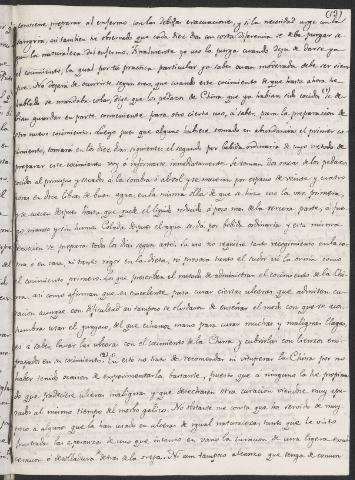 (19)
conviene preparar al enfermo con las debidas evacuaciones, y si la necesidad urge con la
sangria, si tambien he observado que cada diez dias con corta diferencia se debe purgar se
gun la naturaleza del enfermo. Finalmente yo uso la purga cuando dejo de darse ya
el cocimiento, la qual por tu practica particular ya sabes cuan moderada debe ser siem
pre. No dejaria de ocurrirte segun creo, que cuando este cocimiento de que hasta ahora he
hablado se mandaba colar, dige que los pedazos de China que ya habian sido cocidos se de
bian guardar en parte conveniente para otro cierto uso, a saber, para la preparacion de
otro nuevo cocimiento. Luego pues que alguno hubiere tomado en abundancia el primer co
cimiento, tomará en los diez dias siguientes el segundo por bebida ordinaria de cuyo metodo de
preparar este cocimiento voy á informarte inmediatamente. Se toman dos onzas de los pedazos
cocidos al principio y secados á la sombra ó al sol, y se maceran por espacio de veinte y cuatro
horas en diez libras de buen agua en la misma olla de que se hizo uso la vez primera,
y se cuecen despues hasta que quede el liquido reducido á poco mas de la tercera parte, á fue
go manso y sin humo. Colada despues el agua se da por bebida ordinaria, y esta misma
decoccion se prepara todos los dias segun arte: ya no se requiere tanto recogimiento en la ca
ma ó en casa, ni tanto rigor en la dieta, ni provoca tanto el sudor ni la orina como
el cocimiento primero. Los que prescriben el metodo de administrar el cocimiento de la Chi
na, asi como afirman que es excelente para curar ciertas ulceras que admiten cu
racion aunque con dificultad, asi tampoco se olvidaron de enseñar el modo con que se acos
tumbra usar el guayaco, del que echamos mano para curar muchas y malignas llagas,
es á saber lavar las ulceras con el cocimiento de la China y cubrirlas con lienzos em
papados en su cocimiento. En esto no trato de recomendar ni vituperar la China por no
haber tenido ocasion de experimentarla bastante, puesto que á ninguno la he propina
do que padeciere ulceras malignas y que desechara otra curacion viendose muy apu
rado al mismo tiempo del morbo galico. No obstante me consta que ha servido de muy
poco a alguno que la han usado en ulceras de igual naturaleza; tanto que he visto
frustrada la esperanza de uno que intento en vano la curacion de una ligera excul
ceracion ó desolladura detras de la oreja. Ni aun tampoco alcanzo que tenga de comun